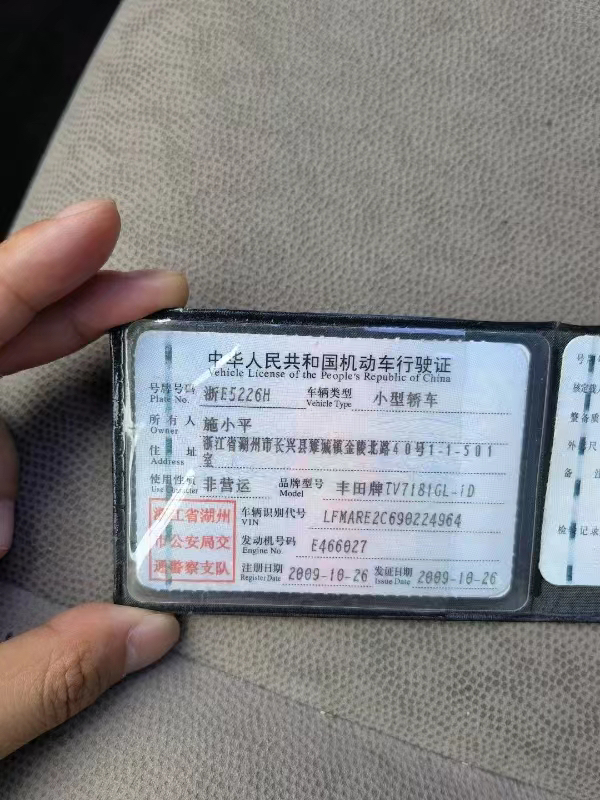 中华人民共和国机动车行驶证
Vehicle License of the People's Republic of China
号牌号码 浙E5226H 车辆类型 小型轿车
Plate No. Vehicle Type
所有人 施小平
Owner
住址 浙江省湖州市长兴县雉城镇金陵北路40号1-1-501室
Address
使用性质 非营运 品牌型号 丰田牌TV7181GL-iD
Use Character Model
浙江省湖州
市公安局交
通警察支队
车辆识别代号 LFMARE2C690224964
VIN
发动机号码 E466027
Engine No.
注册日期 2009-10-26 发证日期 2009-10-26
Register Date Issue Date
号
核定载
整备质
外
尺
备
注
检
记录